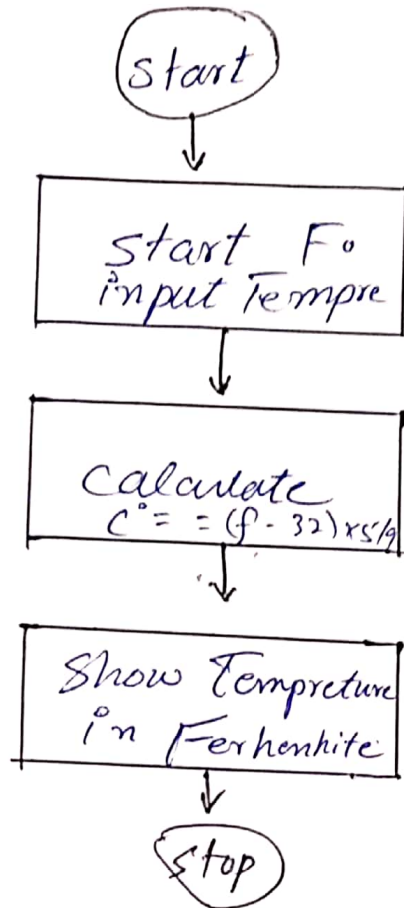 start
start Fo
input Tempre
calculate
c° = = (f - 32) x 5/9
Show Tempreture
in Ferhenhite
stop